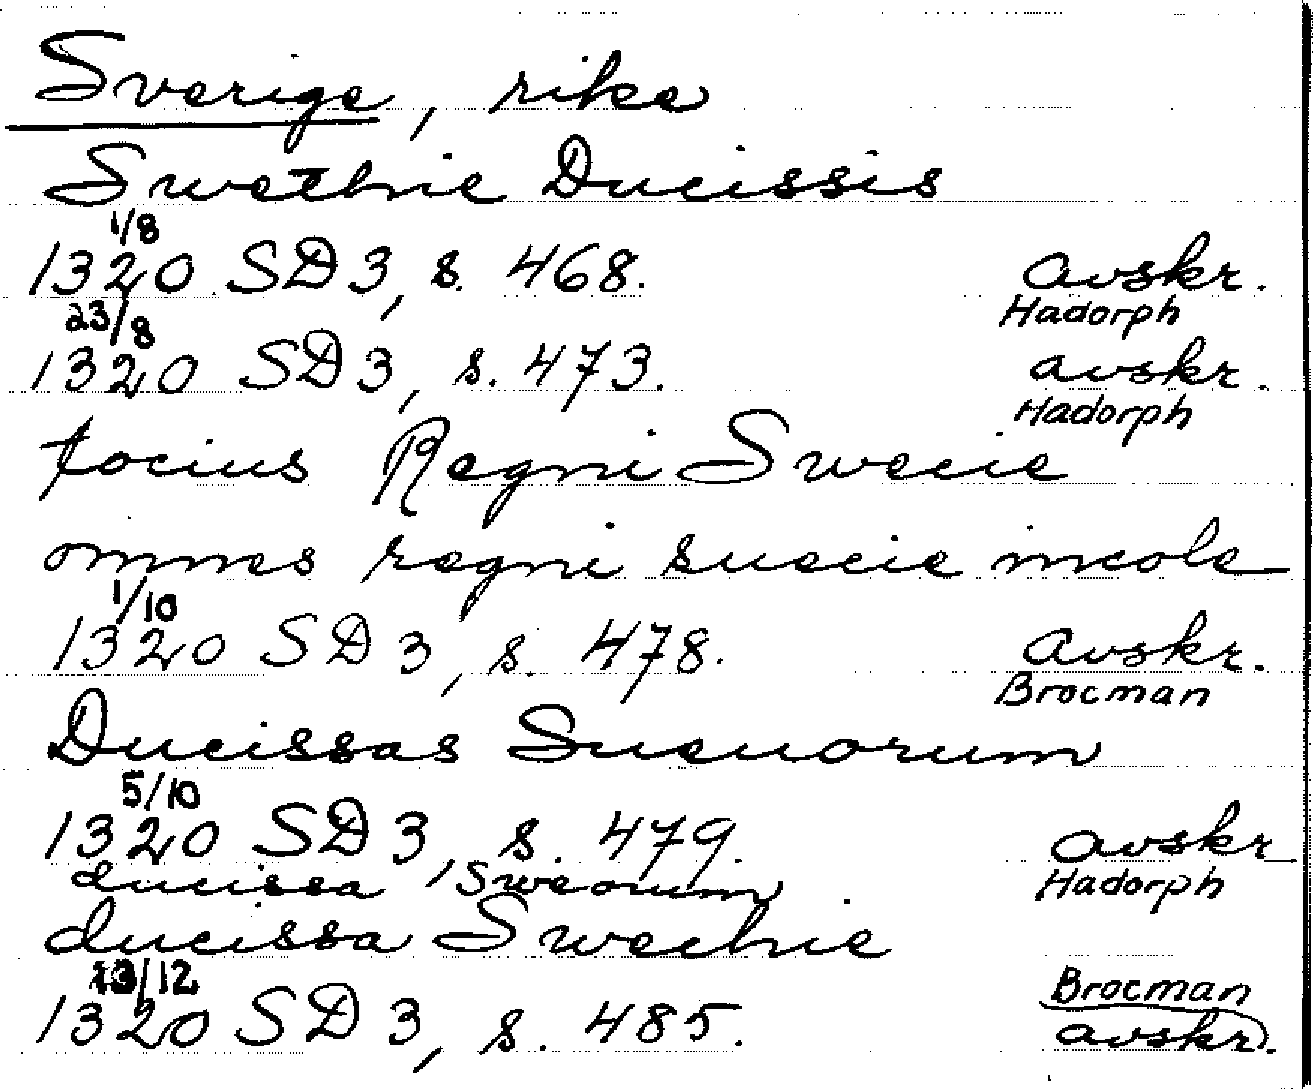 Sverige, rike
Swethie Ducissis
1/8
1320 SD 3, s. 468. avskr.
Hadorph
23/8
1320 SD 3, s. 473. avskr.
Hadorph
tocius Regni Swecie
omnes regni suecie incole
1/10
1320 SD 3, s. 478. avskr.
Brocman
Ducissas Sueuorum
5/10
1320 SD 3, s. 479. avskr
ducissa Sweorum Hadorph
ducissa Swechie
13/12 Brocman
1320 SD 3, s. 485. avskr.